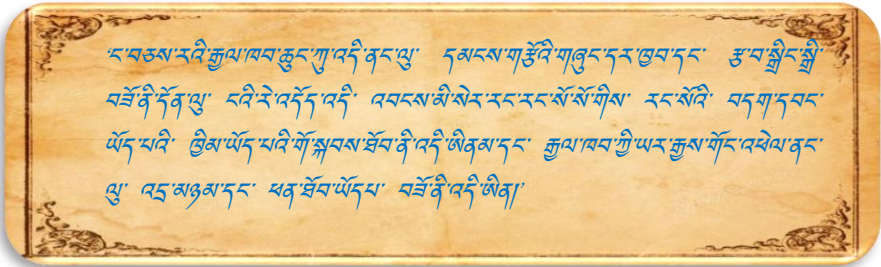 ‘ང་བཅས་རའི་རྒྱལ་ཁབ་ཆུང་ཀུ་འདི་ནང་ལུ་ དམངས་གཙོའི་གཞུང་དར་ཁྱབ་དང་ རྩ་བ་སྒྲིང་སྒྲི་
བཟོ་ནི་དོན་ལུ་ ངའི་རེ་འདོད་འདི་ འབངས་མི་སེར་རང་རང་སོ་སོ་གིས་ རང་སོའི་ བདག་དབང་
ཡོད་པའི་ ཁྱིམ་ཡོད་པའི་གོ་སྐབས་ཐོབ་ནི་འདི་ཨིནམ་དང་ རྒྱལ་ཁབ་ཀྱི་ཡར་རྒྱས་གོང་འཕེལ་ནང་
ལུ་ འདྲ་མཉམ་དང་ ཕན་ཐོབ་ཡོདཔ་ བཟོ་ནི་འདི་ཨིན།’